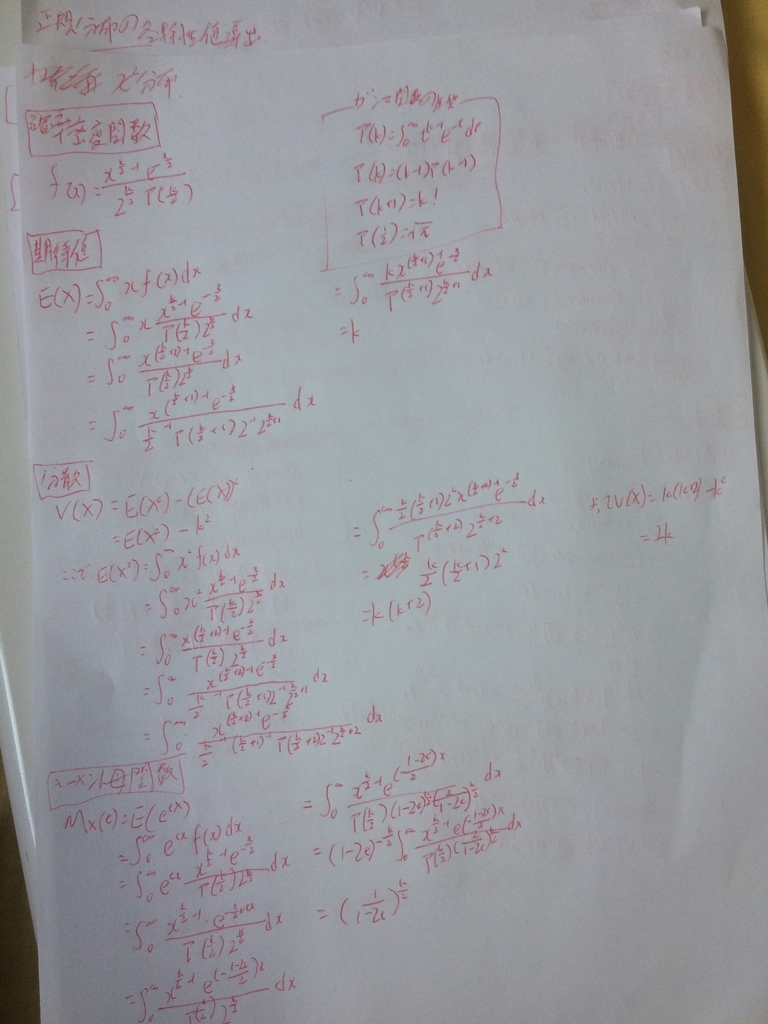 正規分布の各特性値導出
χ²分布
確率密度関数
f(x)=\frac{x^{\frac{k}{2}-1}e^{\frac{x}{2}}}{2^{\frac{k}{2}}Γ(\frac{k}{2})}
ガンマ関数の性質
Γ(k)=∫_0^∞ t^{k-1}e^{-t}dt
Γ(k)=(k-1)Γ(k-1)
Γ(k+1)=k!
Γ(\frac{1}{2})=√π
期待値
E(X)=∫_0^∞ x f(x)dx
=∫_0^∞ x\frac{x^{\frac{k}{2}-1}e^{-\frac{x}{2}}}{Γ(\frac{k}{2})2^{\frac{k}{2}}}dx
=∫_0^∞ \frac{x^{(\frac{k}{2}+1)-1}e^{-\frac{x}{2}}}{Γ(\frac{k}{2})2^{\frac{k}{2}}}dx
=∫_0^∞ \frac{x^{(\frac{k}{2}+1)-1}e^{-\frac{x}{2}}}{\frac{k}{2}^{-1}Γ(\frac{k}{2}+1)2^{-1}2^{\frac{k}{2}+1}}dx
=∫_0^∞ \frac{kx^{(\frac{k}{2}+1)-1}e^{-\frac{x}{2}}}{Γ(\frac{k}{2}+1)2^{\frac{k}{2}+1}}dx
=k
分散
V(X)=E(X²)-(E(X))²
=E(X²)-k²
ここで E(X²)=∫_0^∞ x²f(x)dx
=∫_0^∞ x²\frac{x^{\frac{k}{2}-1}e^{-\frac{x}{2}}}{Γ(\frac{k}{2})2^{\frac{k}{2}}}dx
=∫_0^∞ \frac{x^{(\frac{k}{2}+2)-1}e^{-\frac{x}{2}}}{Γ(\frac{k}{2})2^{\frac{k}{2}}}dx
=∫_0^∞ \frac{x^{(\frac{k}{2}+2)-1}e^{-\frac{x}{2}}}{\frac{k}{2}^{-1}Γ(\frac{k}{2}+1)2^{-1}2^{\frac{k}{2}+1}}dx
=∫_0^∞ \frac{x^{(\frac{k}{2}+2)-1}e^{-\frac{x}{2}}}{\frac{k}{2}^{-1}(\frac{k}{2}+1)^{-1}Γ(\frac{k}{2}+2)2^{-2}2^{\frac{k}{2}+2}}dx
=∫_0^∞ \frac{\frac{k}{2}(\frac{k}{2}+1)2²x^{(\frac{k}{2}+2)-1}e^{-\frac{x}{2}}}{Γ(\frac{k}{2}+2)2^{\frac{k}{2}+2}}dx
=\frac{k}{2}(\frac{k}{2}+1)2²
=k(k+2)
よってV(X)=k(k+2)-k²
=2k
モーメント母関数
M_X(t)=E(e^{tX})
=∫_0^∞ e^{tx}f(x)dx
=∫_0^∞ e^{tx}\frac{x^{\frac{k}{2}-1}e^{-\frac{x}{2}}}{Γ(\frac{k}{2})2^{\frac{k}{2}}}dx
=∫_0^∞ \frac{x^{\frac{k}{2}-1}e^{-\frac{x}{2}+tx}}{Γ(\frac{k}{2})2^{\frac{k}{2}}}dx
=∫_0^∞ \frac{x^{\frac{k}{2}-1}e^{(-\frac{1-2t}{2})x}}{Γ(\frac{k}{2})2^{\frac{k}{2}}}dx
=∫_0^∞ \frac{x^{\frac{k}{2}-1}e^{(-\frac{1-2t}{2})x}}{Γ(\frac{k}{2})(1-2t)^{\frac{k}{2}}(\frac{2}{1-2t})^{\frac{k}{2}}}dx
=(1-2t)^{-\frac{k}{2}}∫_0^∞ \frac{x^{\frac{k}{2}-1}e^{(-\frac{1-2t}{2})x}}{Γ(\frac{k}{2})(\frac{2}{1-2t})^{\frac{k}{2}}}dx
=(\frac{1}{1-2t})^{\frac{k}{2}}